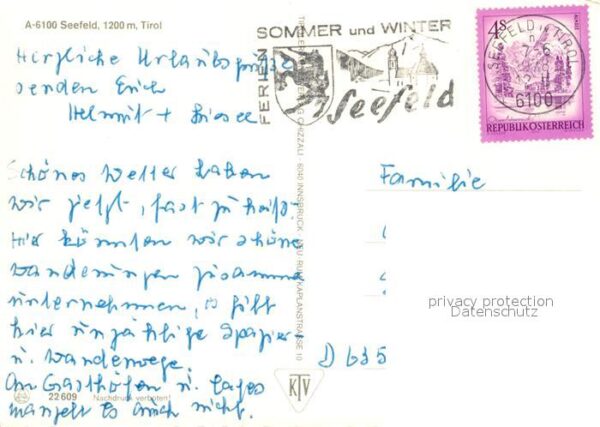 A-6100 Seefeld, 1200 m, Tirol
Herzliche Urlaubsgrüße
senden Euch
Helmut +
Schönes Wetter haben
wir jetzt, fast zu heiß!
Hier könnten wir schöne
Wanderungen zusammen
unternehmen, es gibt
hier unzählige Spazier
u. Wanderwege.
An Gasthöfen u. Cafes
mangelt es auch nicht.
22609 Nachdruck verboten!
FERIEN
SOMMER und WINTER
Seefeld
CHIZZALI · 6040 INNSBRUCK - NEU-RUM, KAPLANSTRASSE 10
KTV
SEEFELD TIROL
6100
4S
REPUBLIK ÖSTERREICH
Familie
D 635
privacy protection
Datenschutz